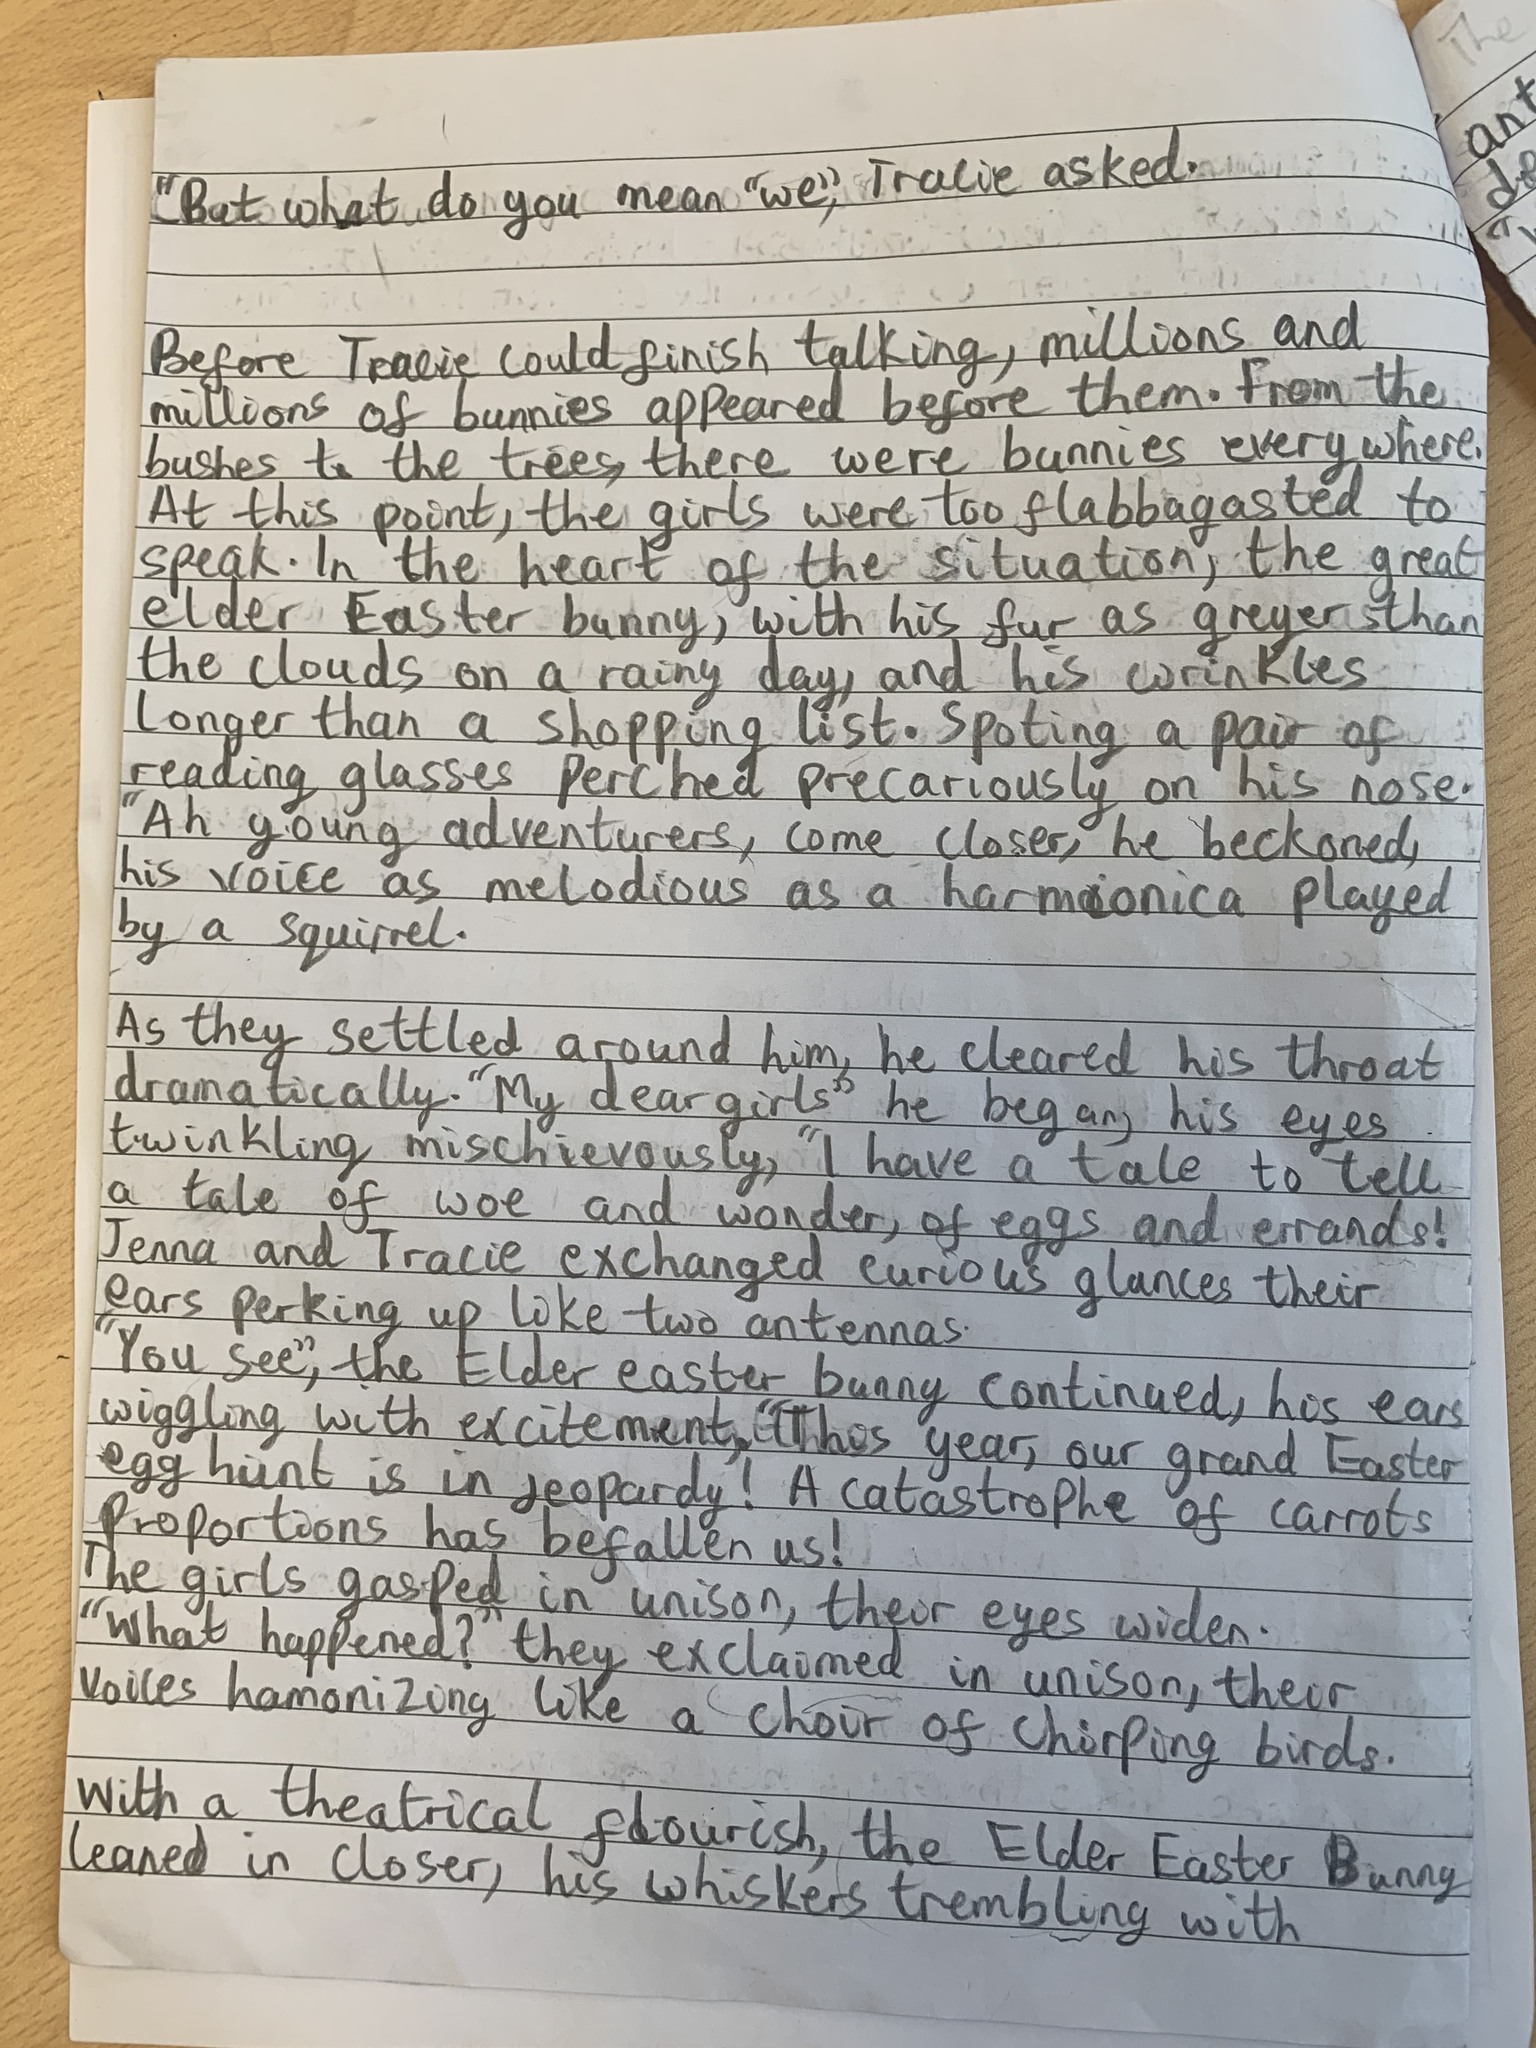 "But what do you mean "we", Tracie asked.
Before Tracie could finish talking, millions and
millions of bunnies appeared before them. From the
bushes to the trees, there were bunnies everywhere.
At this point, the girls were too flabbagasted to
speak. In the heart of the situation, the great
elder Easter bunny, with his fur as greyer than
the clouds on a rainy day, and his wrinkles
longer than a shopping list. Spoting a pair of
reading glasses perched precariously on his nose.
"Ah young adventurers, come closer, he beckoned,
his voice as melodious as a harmonica played
by a squirrel.
As they settled around him, he cleared his throat
dramatically. "My dear girls" he began, his eyes
twinkling mischievously, "I have a tale to tell
a tale of woe and wonder, of eggs and errands!
Jenna and Tracie exchanged curious glances their
ears perking up like two antennas.
"You see", the Elder easter bunny continued, his ears
wiggling with excitement, "This year, our grand Easter
egg hunt is in jeopardy! A catastrophe of carrots
proportions has befallen us!
The girls gasped in unison, their eyes widen.
"What happened?" they exclaimed in unison, their
voices hamonizing like a choir of chirping birds.
With a theatrical flourish, the Elder Easter Bunny
leaned in closer, his whiskers trembling with
The
ant